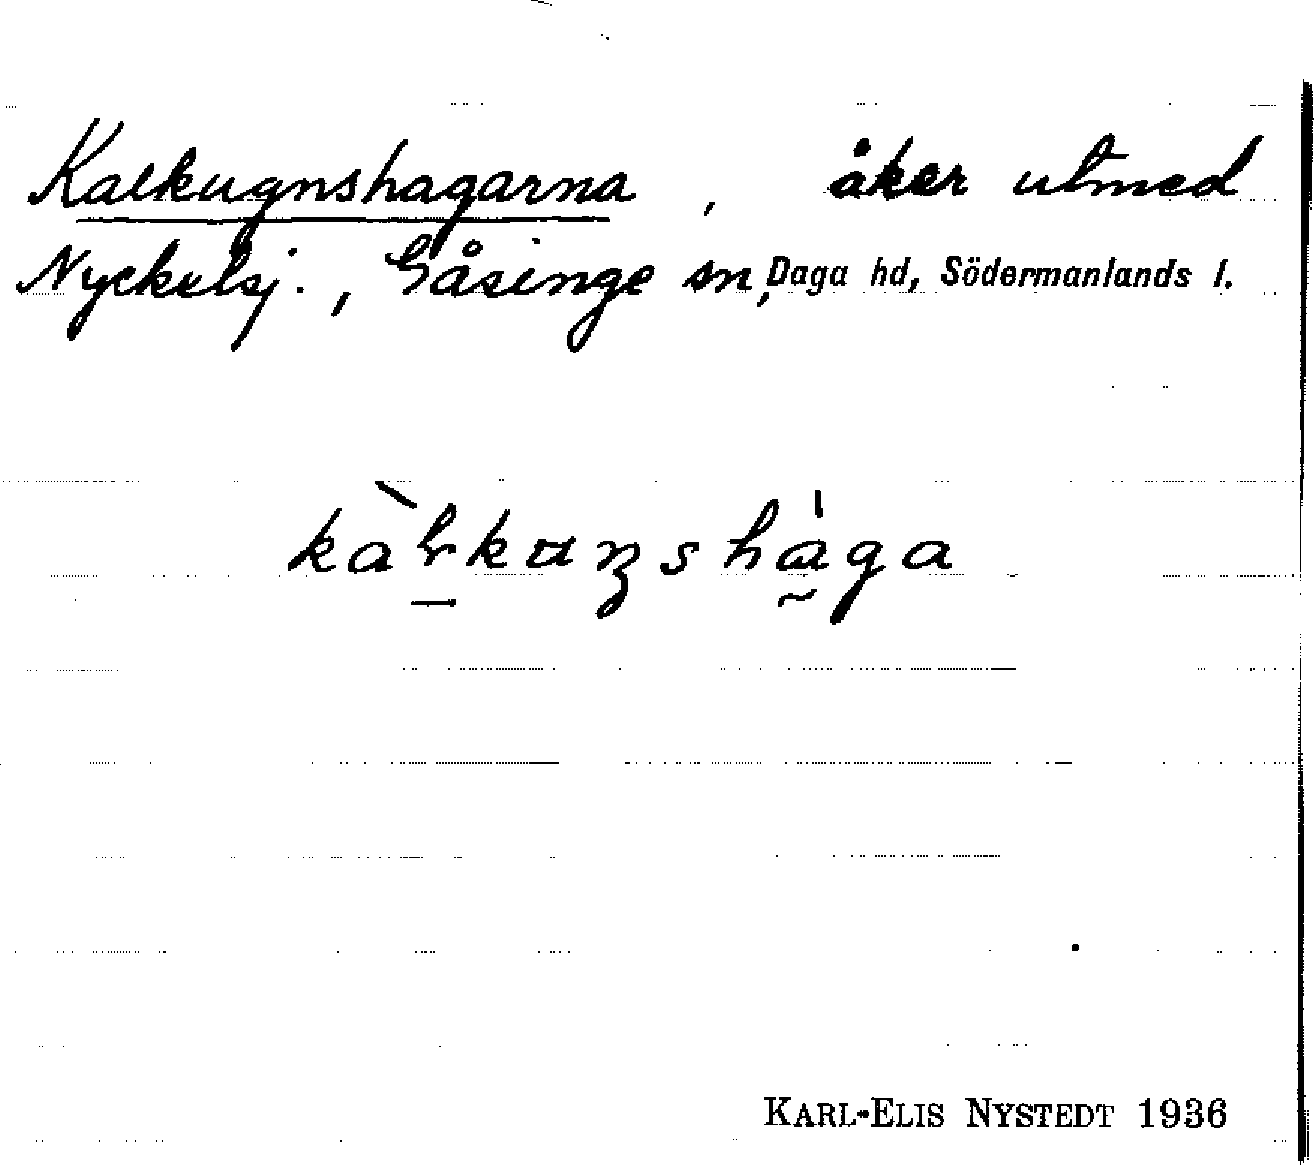 Kalkugnshagarna, åker utmed
Nyckelsj., Gåsinge sn, Daga hd, Södermanlands l.
KARL-ELIS NYSTEDT 1936